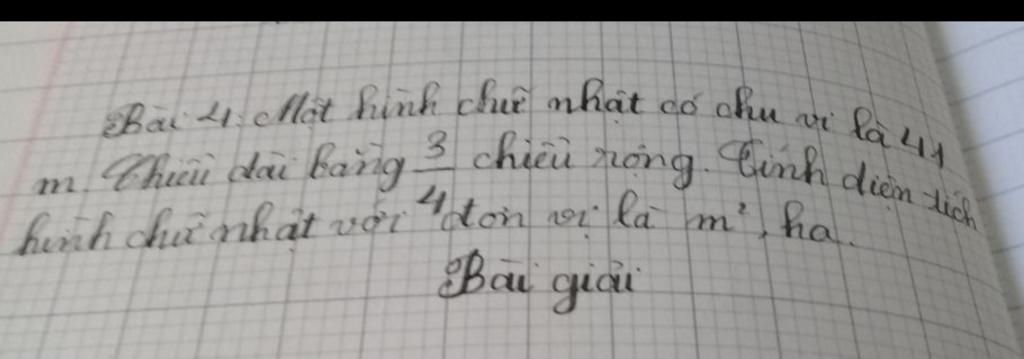 Bài 4: Một hình chữ nhật có chu vi là 41
m. Chiều dài bằng 3/4 chiều rộng. Tính diện tích
hình chữ nhật với đơn vị là m², ha.
Bài giải